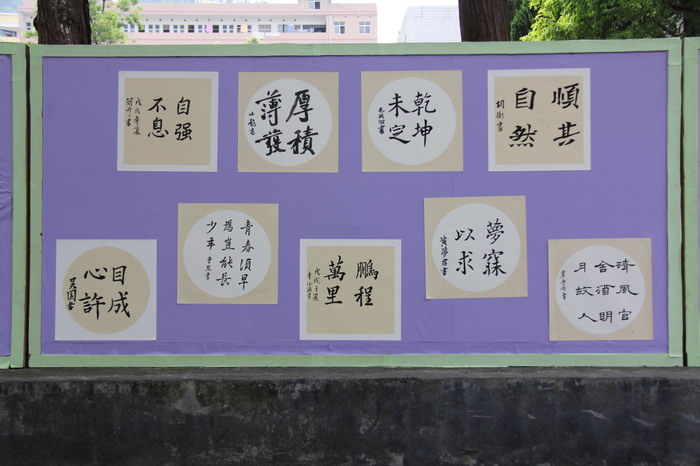 自强
不息
厚積
薄發
乾坤
未定
順其
自然
青春須早
為豈能長
少年
夢寐
以求
目成
心許
鵬程
萬里
清風官
舍酒明
月故人